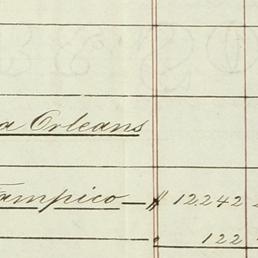 a Orleans
Tampico — $ 12242
" 122